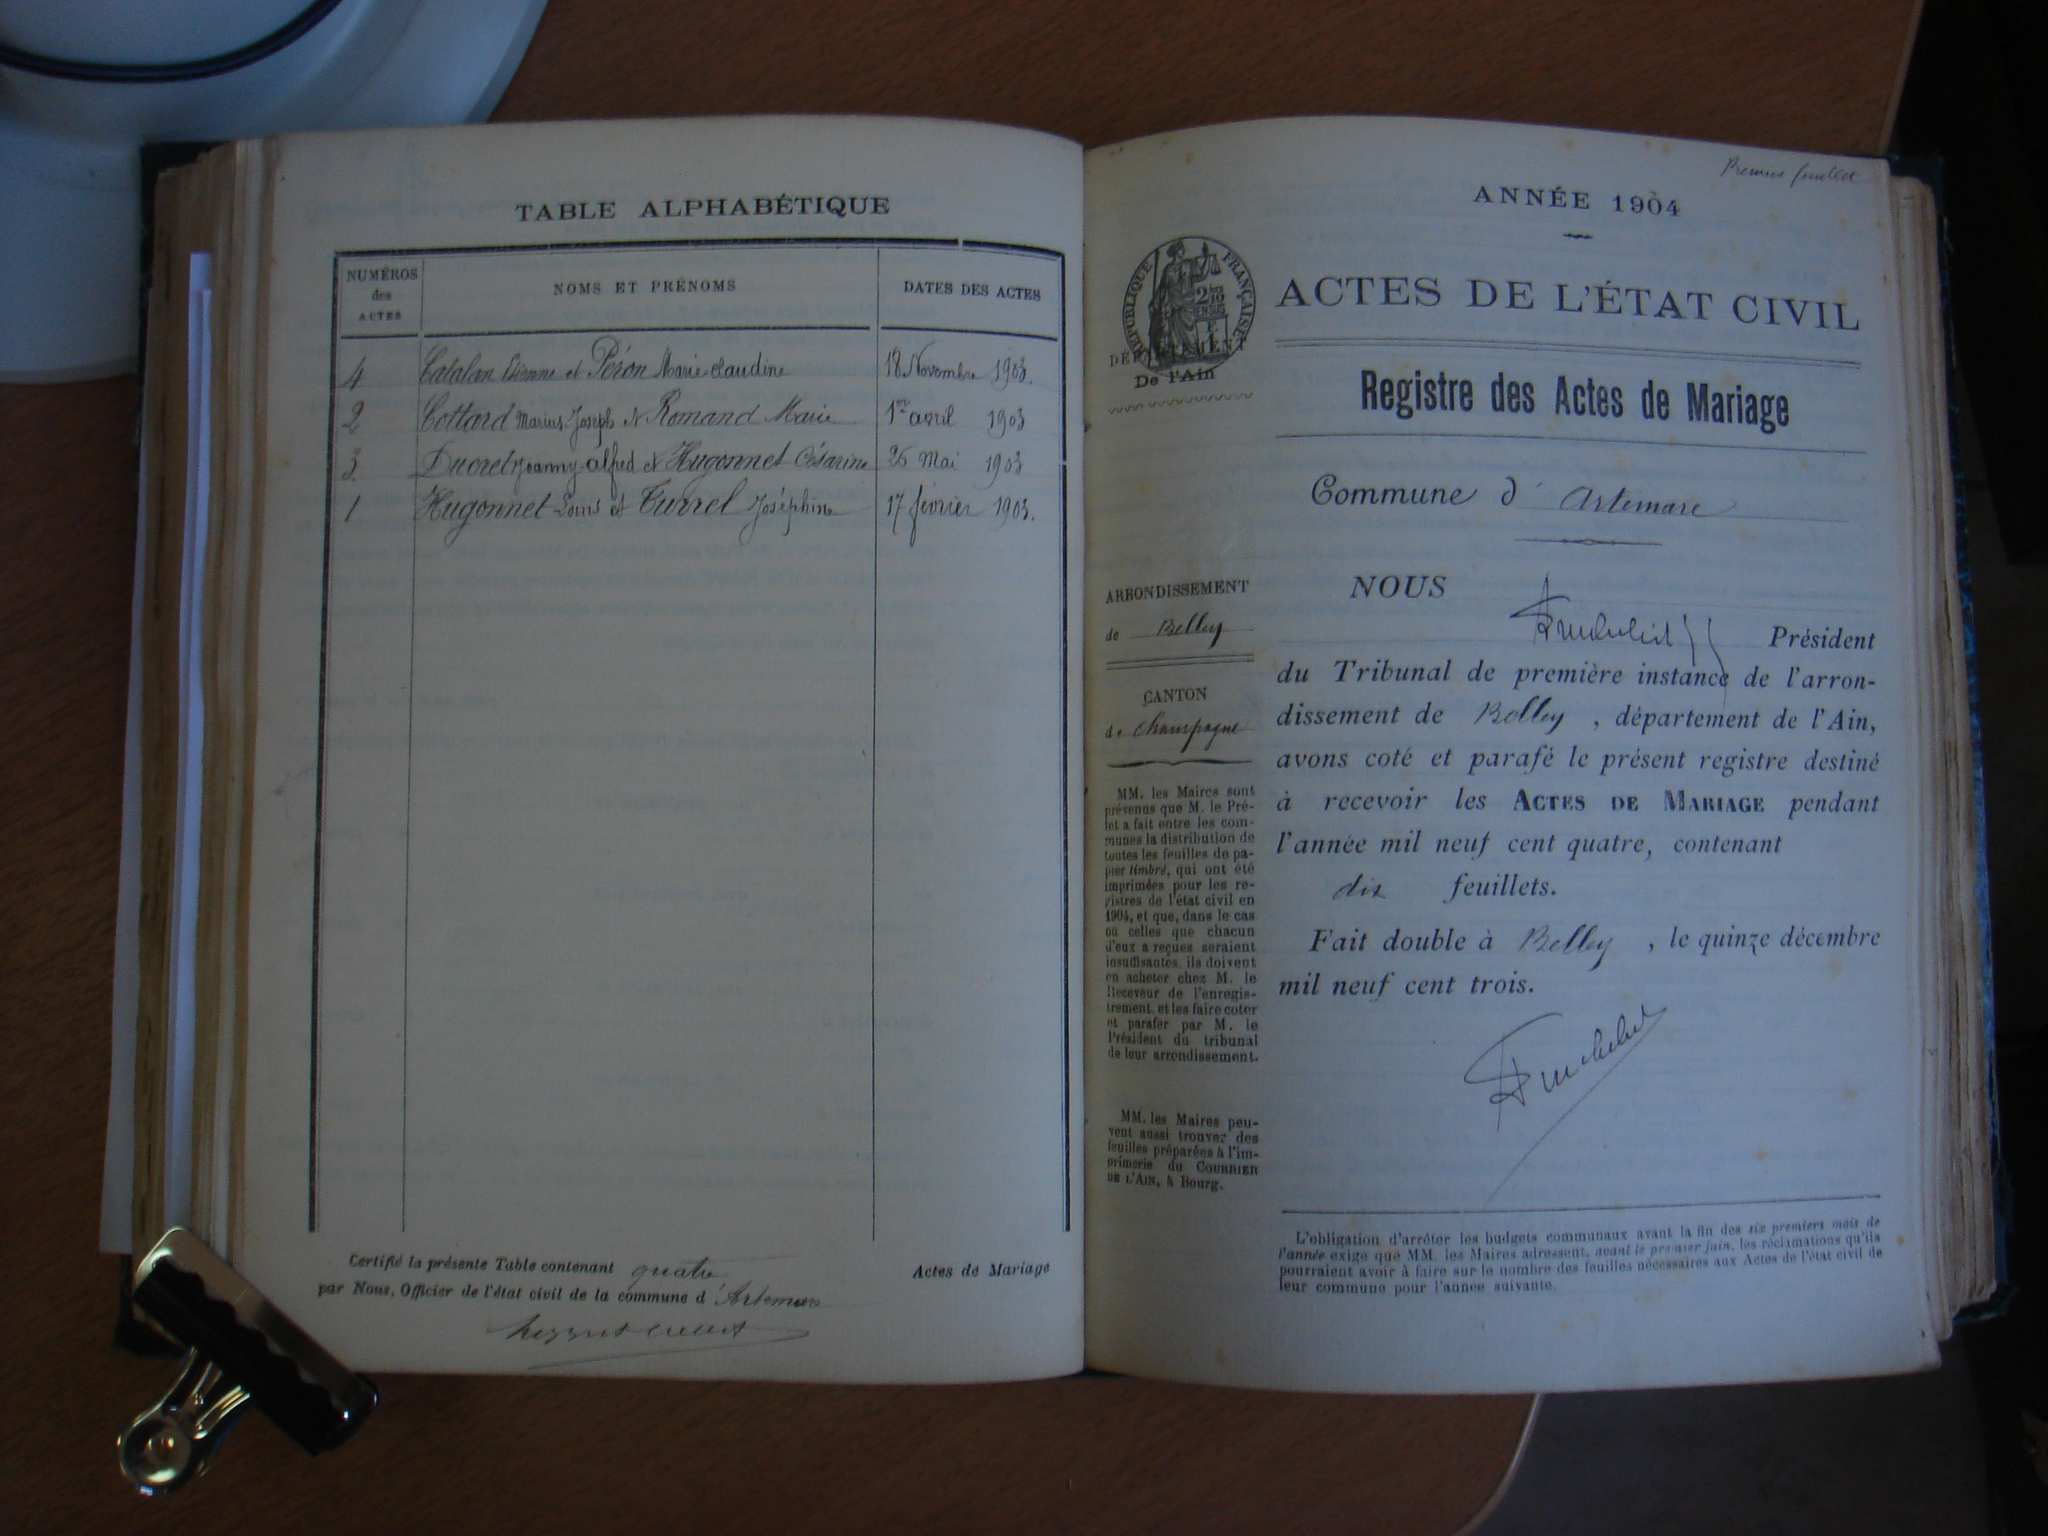 TABLE ALPHABÉTIQUE
NUMÉROS
des
ACTES
NOMS ET PRÉNOMS
DATES DES ACTES
4 Catalan Etienne et Péron Marie Claudine 18 Novembre 1903.
2 Cottard Marius Joseph et Romand Marie 1er avril 1903
3. Ducret Joanny-alfred et Hugonnet Césarine 26 Mai 1903
1 Hugonnet Louis et Turrel Joséphine 17 février 1903.
Certifié la présente Table contenant quatre Actes de Mariage
par Nous, Officier de l'état civil de la commune d'Artemare
Premier feuillet
ANNÉE 1904
RÉPUBLIQUE FRANÇAISE
DÉPARTEMENT
De l'Ain
ACTES DE L'ÉTAT CIVIL
Registre des Actes de Mariage
Commune d'Artemare
ARRONDISSEMENT
de Belley
CANTON
de Champagne
MM. les Maires sont
prévenus que M. le Pré-
fet a fait entre les com-
munes la distribution de
toutes les feuilles de pa-
pier timbré, qui ont été
imprimées pour les re-
gistres de l'état civil en
1904, et que, dans le cas
où celles que chacun
d'eux a reçues seraient
insuffisantes, ils doivent
en acheter chez M. le
Receveur de l'enregis-
trement, et les faire coter
et parafer par M. le
Président du tribunal
de leur arrondissement.
MM. les Maires peu-
vent aussi trouver des
feuilles préparées à l'im-
primerie du COURRIER
DE L'AIN, à Bourg.
NOUS
Président
du Tribunal de première instance de l'arron-
dissement de Belley, département de l'Ain,
avons coté et parafé le présent registre destiné
à recevoir les ACTES DE MARIAGE pendant
l'année mil neuf cent quatre, contenant
dix feuillets.
Fait double à Belley, le quinze décembre
mil neuf cent trois.
L'obligation d'arrêter les budgets communaux avant la fin des six premiers mois de
l'année exige que MM. les Maires adressent, avant le premier juin, les réclamations qu'ils
pourraient avoir à faire sur le nombre des feuilles nécessaires aux Actes de l'état civil de
leur commune pour l'année suivante.